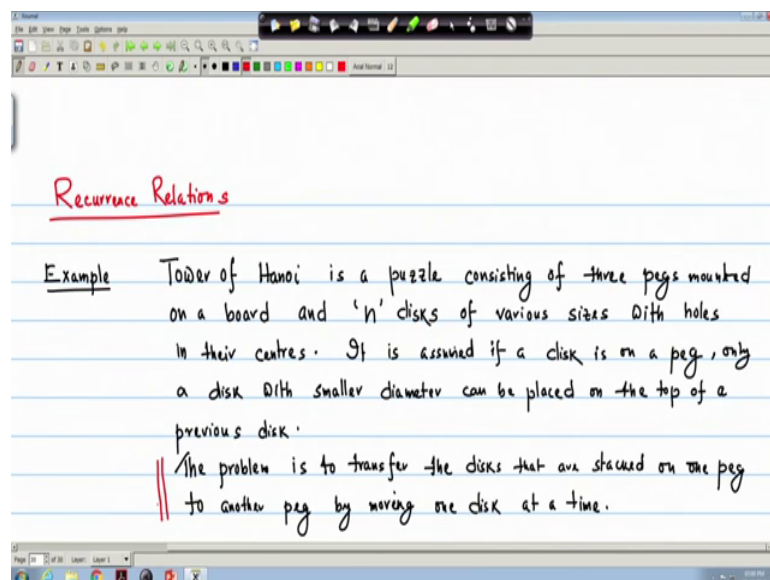 Journal
File Edit View Page Tools Options Help
Arial Normal 12
Recurrence Relations
Example Tower of Hanoi is a puzzle consisting of three pegs mounted
on a board and 'n' disks of various sizes with holes
in their centres. It is assumed if a disk is on a peg, only
a disk with smaller diameter can be placed on the top of a
previous disk.
The problem is to transfer the disks that are stacked on one peg
to another peg by moving one disk at a time.
Page 30 of 30 Layer: Layer 1